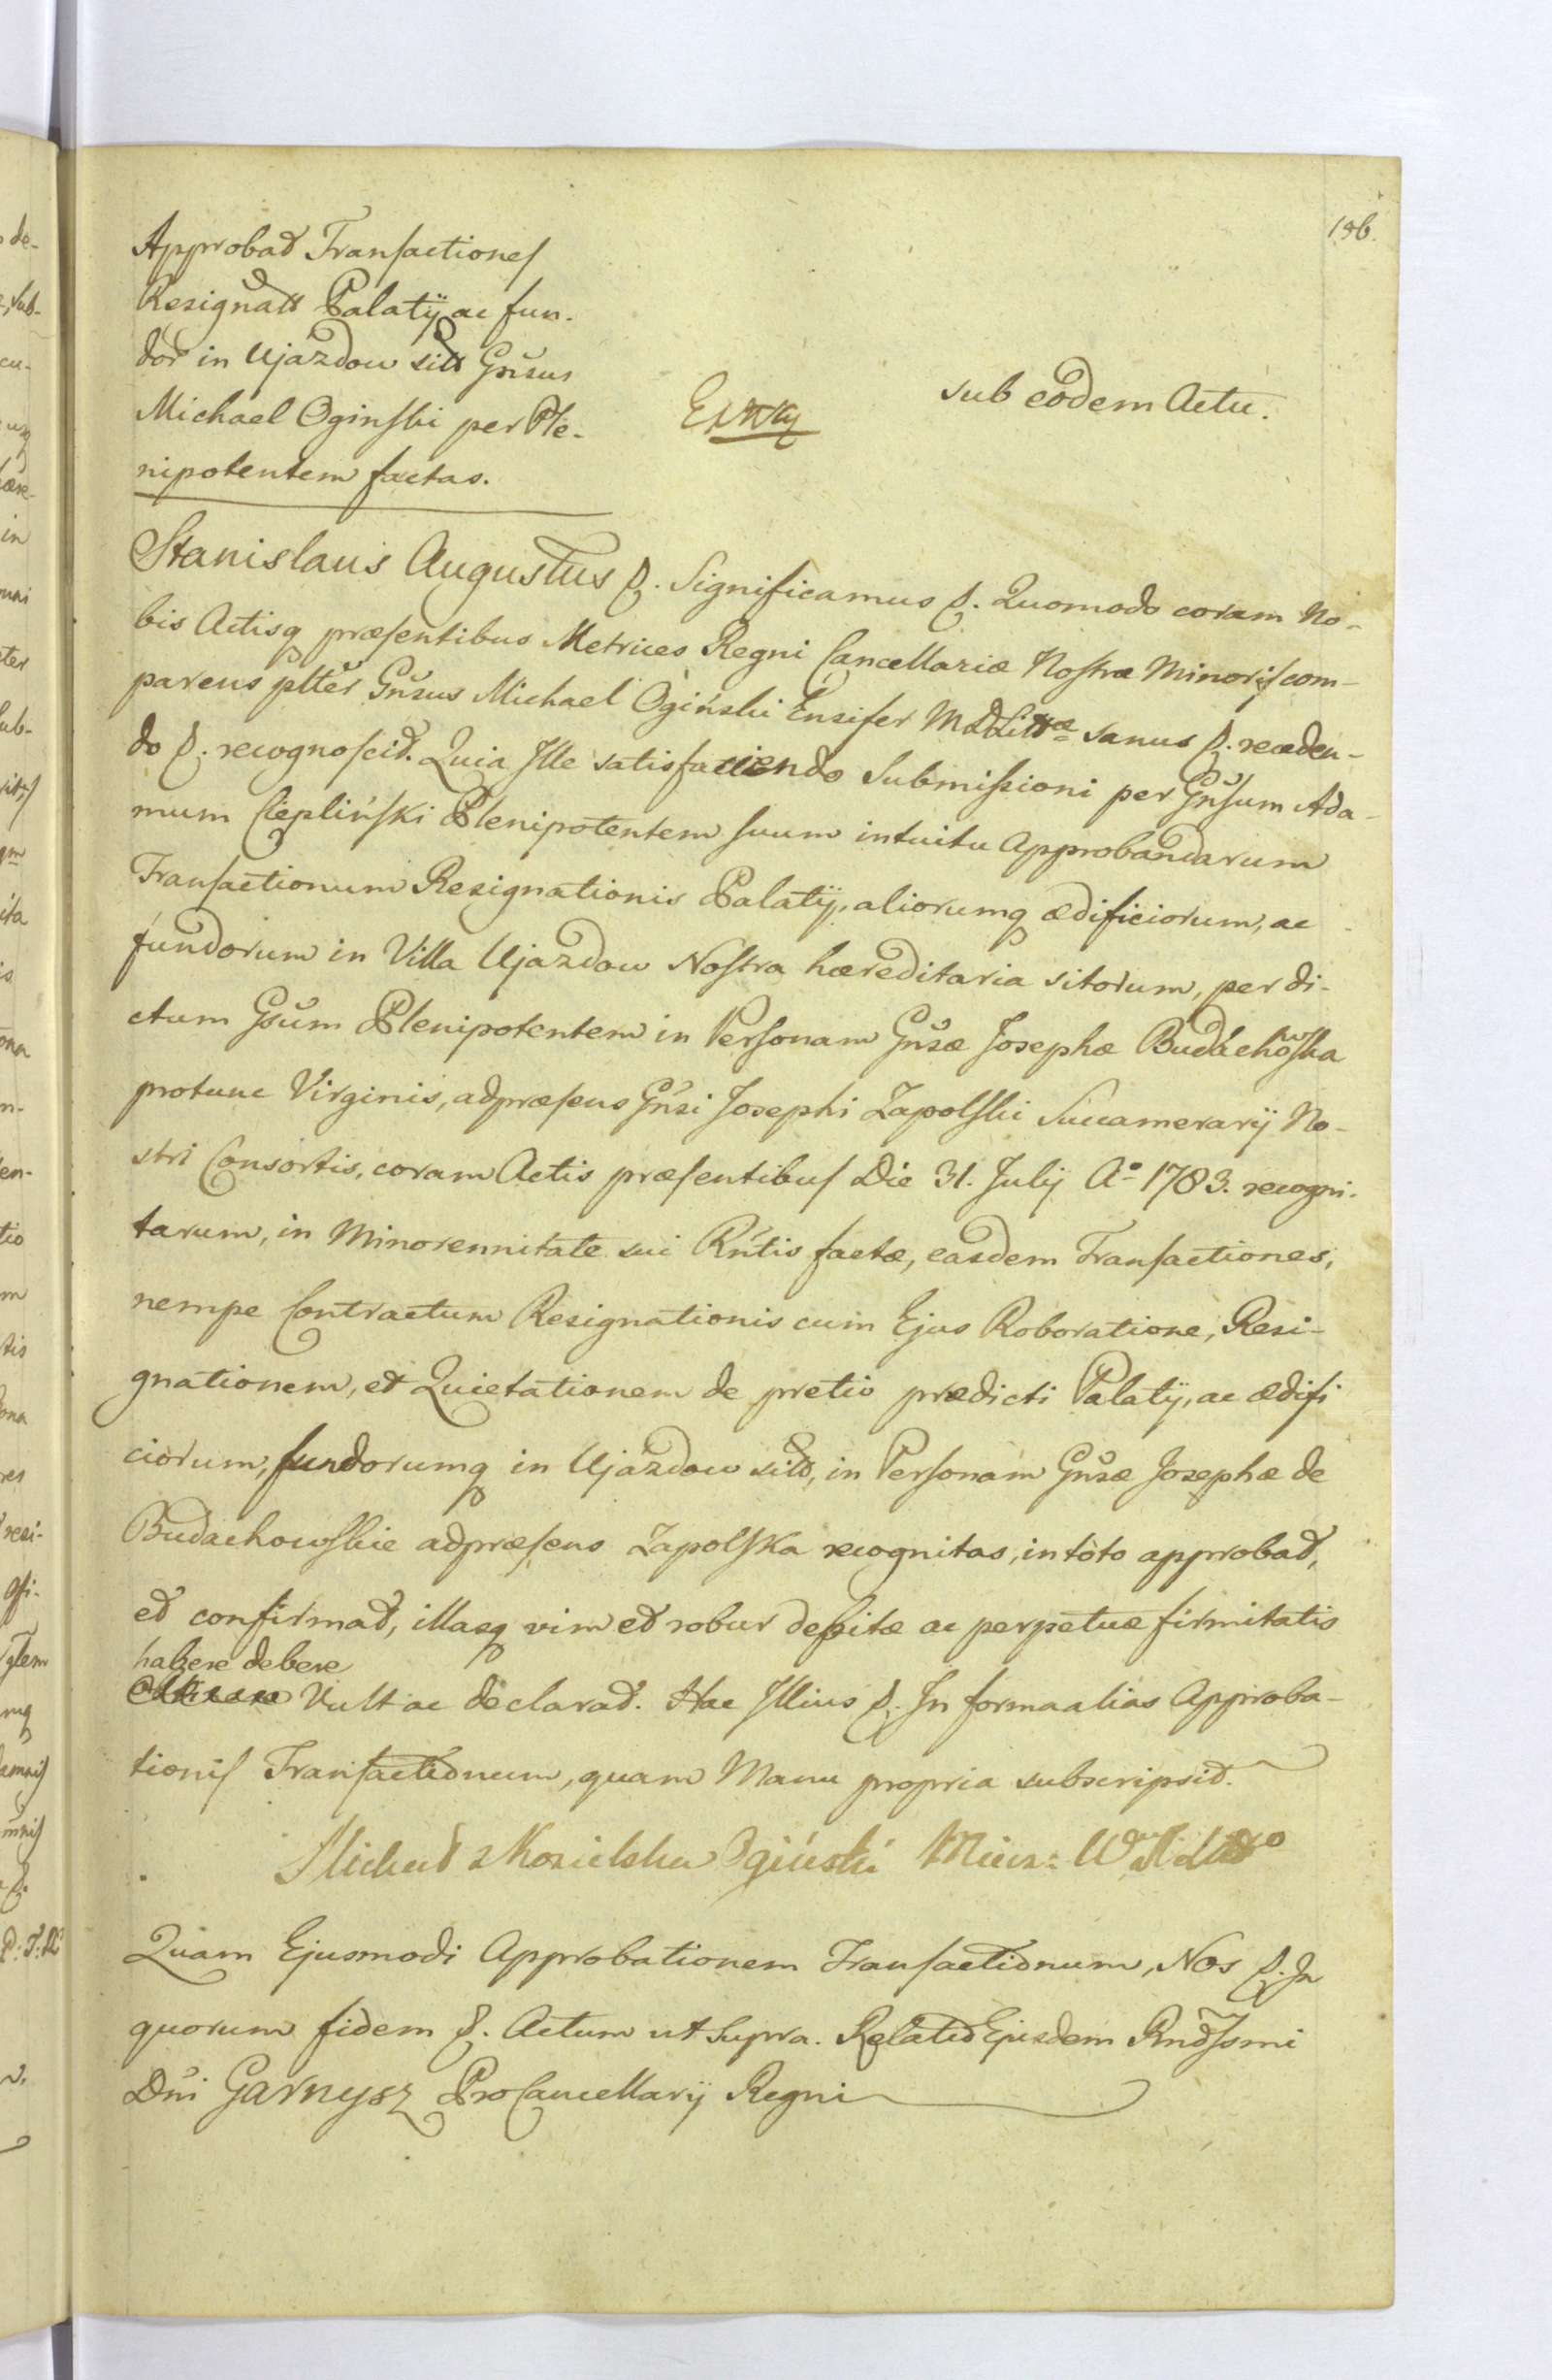 196.
Approbat Transactiones
Resignatt Palatij ac fun-
dor in Ujazdow sitt Gnsus
Michael Oginski per Ple-
nipotentem factas.
sub eodem Actu.
Stanislaus Augustus &. Significamus &. Quomodo coram No-
bis Actisq præsentibus Metrices Regni Cancellariæ Nostræ Minoris com-
parens plter Gnsus Michael Ogiński Ensifer M D Littæ sanus &. receden-
do &. recognoscit. Quia Ille satisfaciendo Submissioni per Gnsum Ada-
mum Ciepliński Plenipotentem suum intuitu Approbandarum
Transactionum Resignationis Palatij, aliorumq ædificiorum, ac
fundorum in Villa Ujazdow Nostra hæreditaria sitorum, per di-
ctum Gsum Plenipotentem in Personam Gnsæ Josephæ Budachowska
protunc Virginis, adpræsens Gnsi Josephi Zapolski Succamerarij No-
stri Consortis, coram Actis præsentibus Die 31. Julij Ao 1783. recogni-
tarum, in Minorennitate sui Rntis factæ, easdem Transactiones,
nempe Contractum Resignationis cum Ejus Roboratione, Resi-
gnationem, et Quietationem de pretio prædicti Palatij, ac ædifi
ciorum, fundorumq in Ujazdow sitt, in Personam Gnsæ Josephæ de
Budachowskie adpræsens Zapolska recognitas, in toto approbat,
et confirmat, illasq vim et robur debitæ ac perpetuæ firmitatis
habere debere
Vult ac declarat. Hac Illius &. In forma alias Approba-
tionis Transactionum, quam Manu propria subscripsit.
Michał z Kozielska Ogiński Miecz: W X Litto
Quam Ejusmodi Approbationem Transactionum, Nos &. In
quorum fidem &. Actum ut Supra. Relatio Ejusdem Rndssmi
Dni Garnysz ProCancellarij Regni